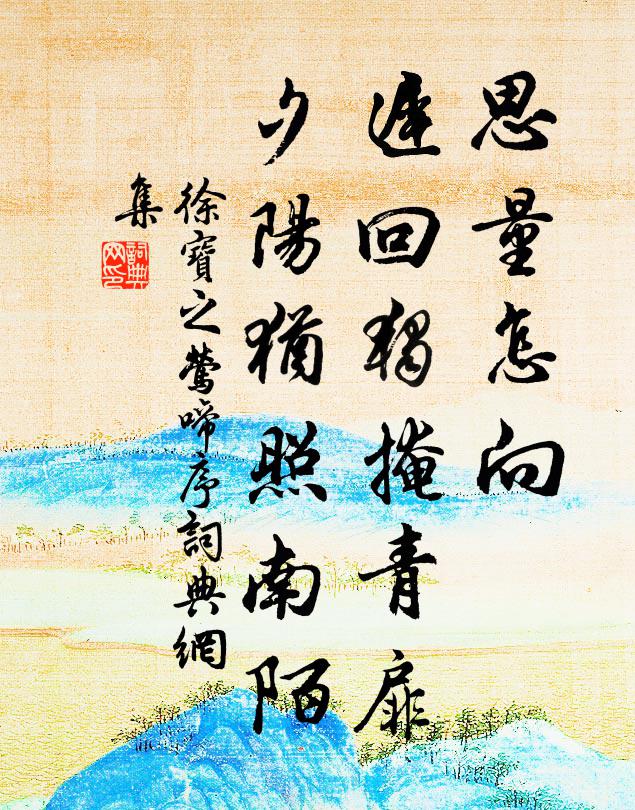 思量怎向
遲回獨掩青扉
夕陽猶照南陌
徐寶之鶯啼序詞典網
集
詞典网印